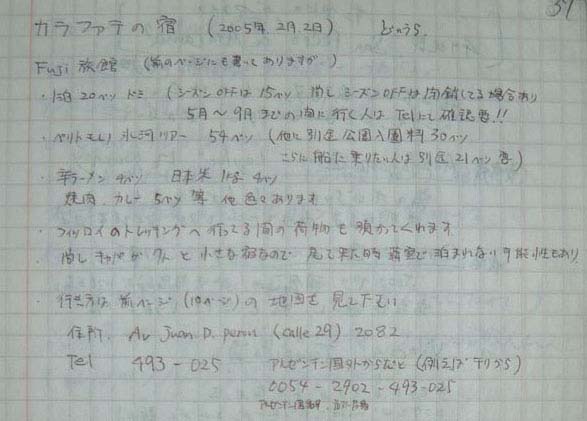 37
カラファテの宿 (2005年.2月.2日)
Fuji旅館 (前のページにも書いてありますが)
・1泊20ペソ ドミ (シーズンOFFは15ペソ 但しシーズンOFFは閉鎖してる場合あり
5月〜9月までの間に行く人はTelにて確認要!!
・ペリトモレノ氷河ツアー 54ペソ (他に別途公園入園料30ペソ
さらに船に乗りたい人は別途21ペソ要)
・辛ラーメン4ペソ 日本米1kg 4ペソ
焼肉.カレー 5ペソ等 他色々あります
・フィッツロイのトレッキングへ行ってる間の荷物も預かってくれます
・但しキャパが 人と小さな宿なので 尾で来た時 満室で泊まれない可能性もあり
・行き方は前ページ(10ページ)の地図を見て下さい
住所. Av Juan.D.peron (calle 29) 2082.
Tel 493-025
アルゼンチン国外からだと (例えばチリから)
0054-2902-493-025
アルゼンチン国番号